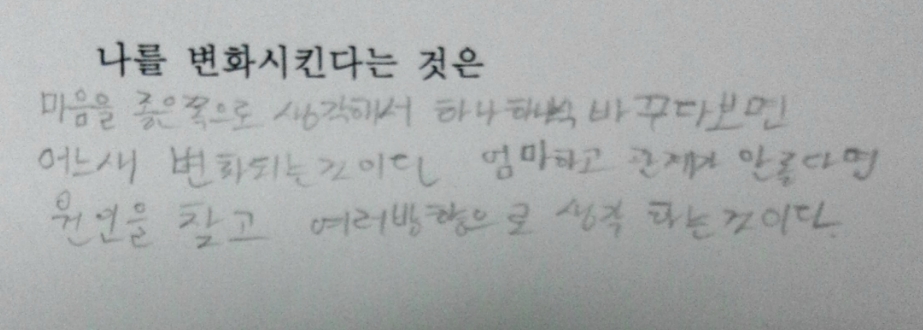 나를 변화시킨다는 것은
마음을 좋은쪽으로 생각해서 하나 하나씩 바꾸다보면
어느새 변화되는것이다 엄마하고 관계가 안좋다면
원인을 찾고 여러방향으로 생각 하는것이다.